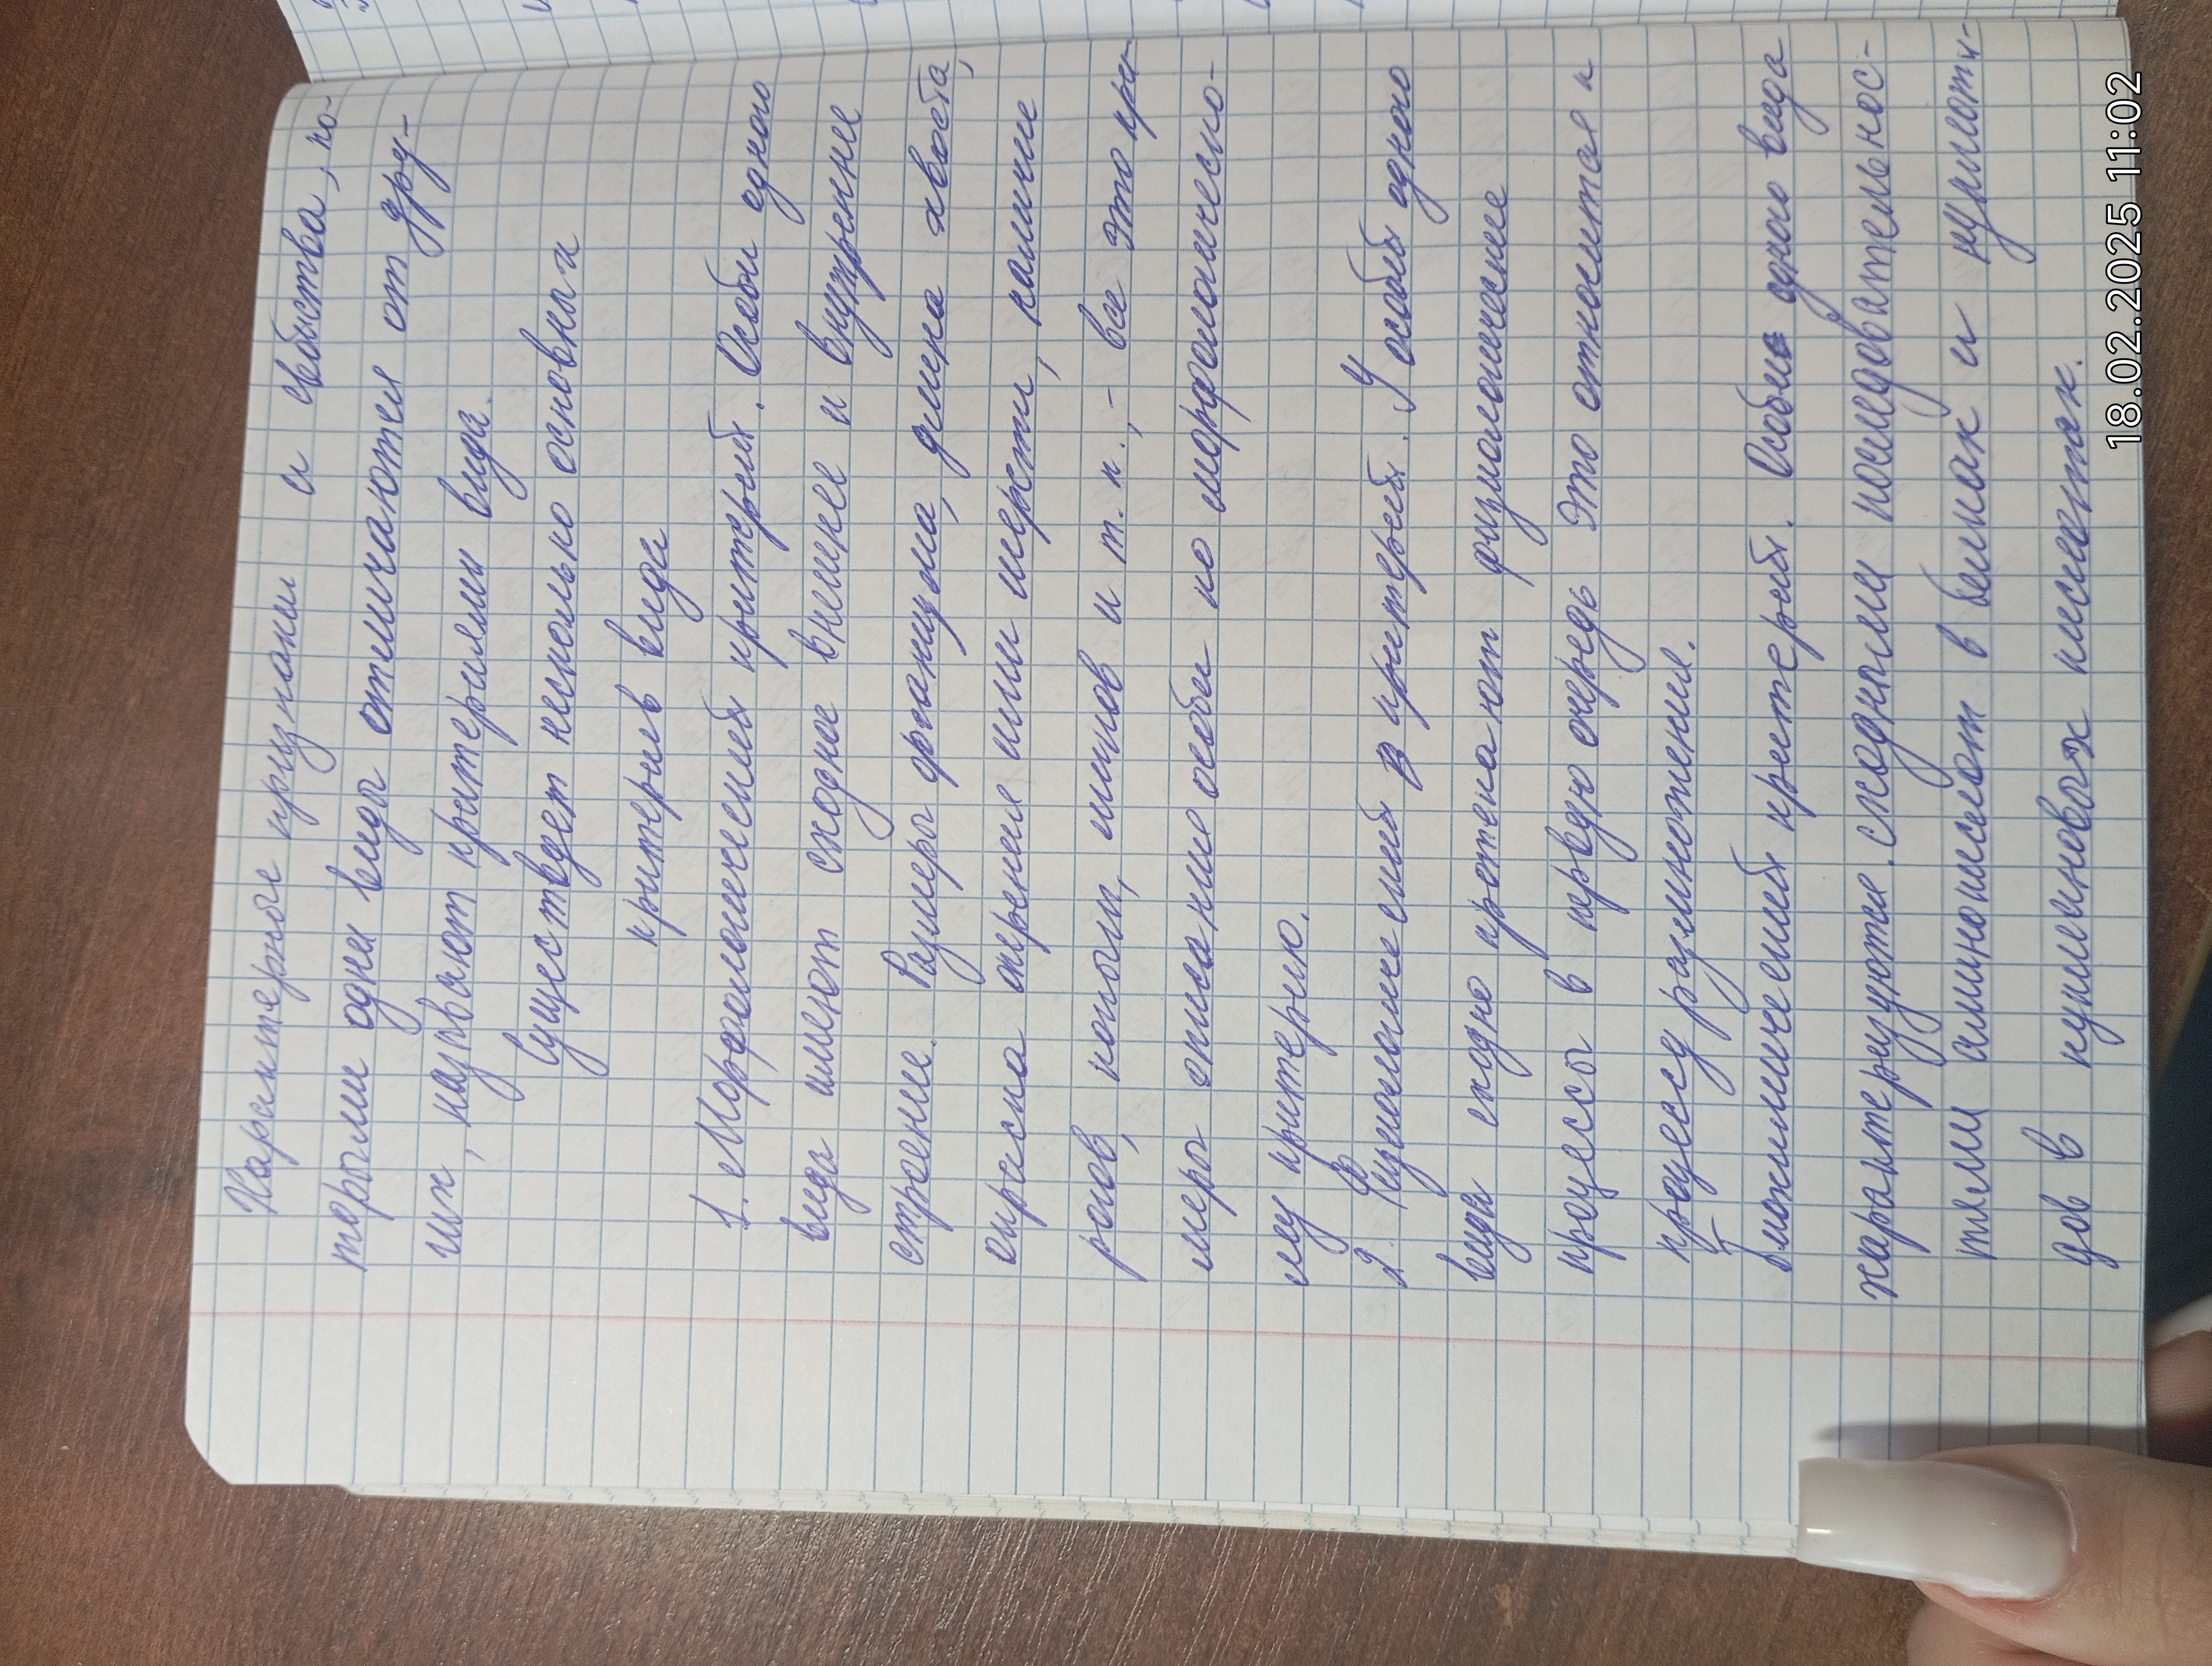 Характерные признаки и свойства, ко-
торыми одни виды отличаются от дру-
гих, называют критериями вида.
Существует несколько основных
критериев вида
1. Морфологический критерий. Особи одного
вида имеют сходное внешнее и внутреннее
строение. Размеры организма, длина хвоста,
окраска оперения или шерсти, наличие
рогов, когтей, шипов и т. п., - все это при-
меры описания особи по морфологическо-
му критерию.
2. Физиологический критерий. У особей одного
вида сходно протекают физиологические
процессы в первую очередь это относится к
процессу размножения.
Биохимический критерий. Особи одного вида
характеризуются сходными последовательнос-
тями аминокислот в белках и нуклеоти-
дов в нуклеиновых кислотах.
18.02.2025 11:02